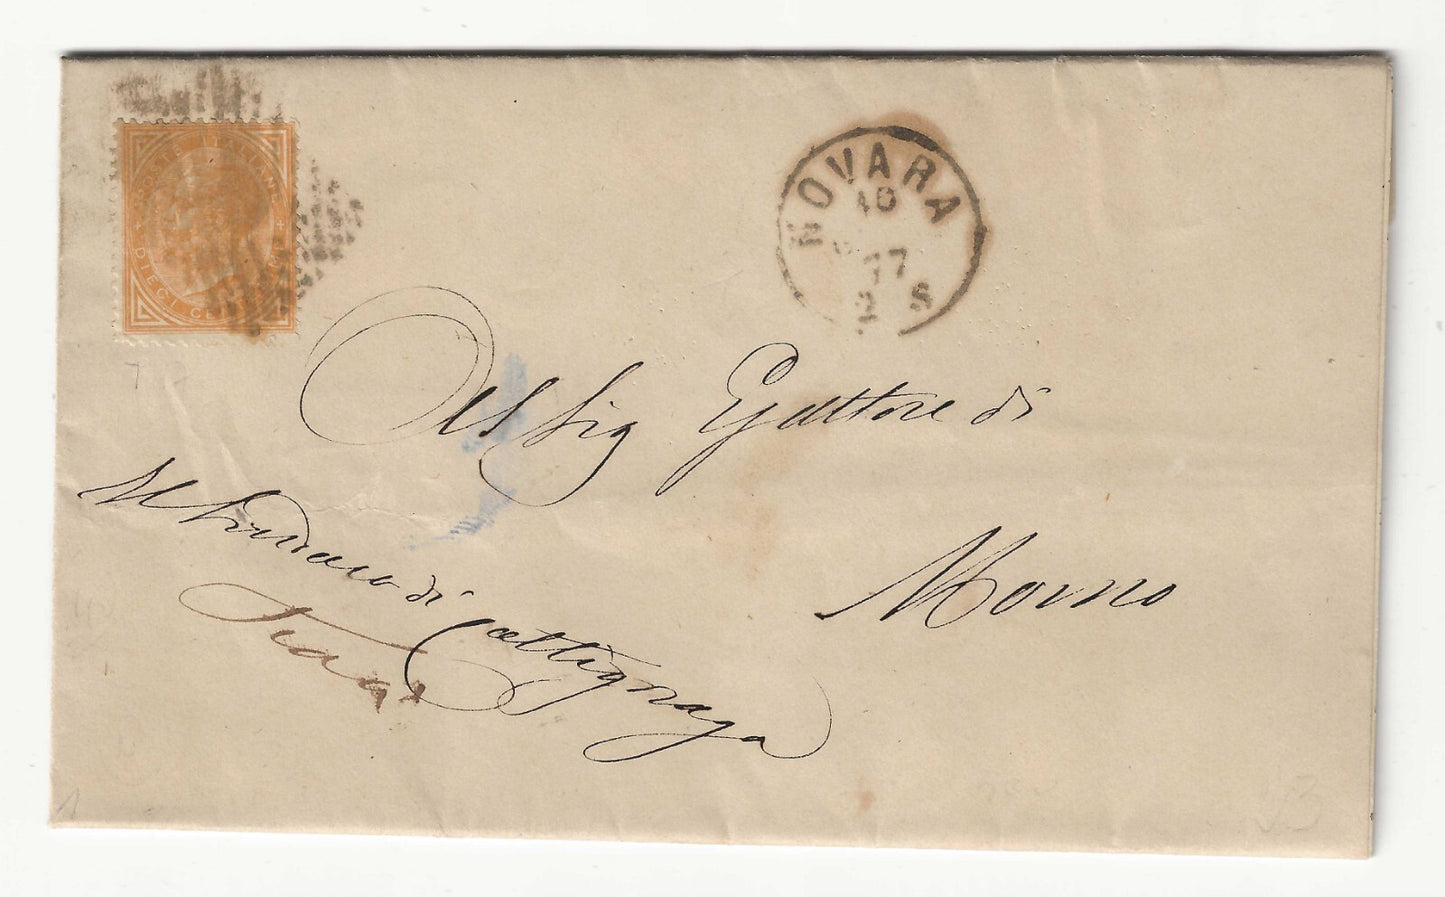 POSTE ITALIANE
DIECI CENTESIMI
NOVARA
10
77
2 S
Al Sig Esattore di
Momo
Il Sindaco di Caltignaga